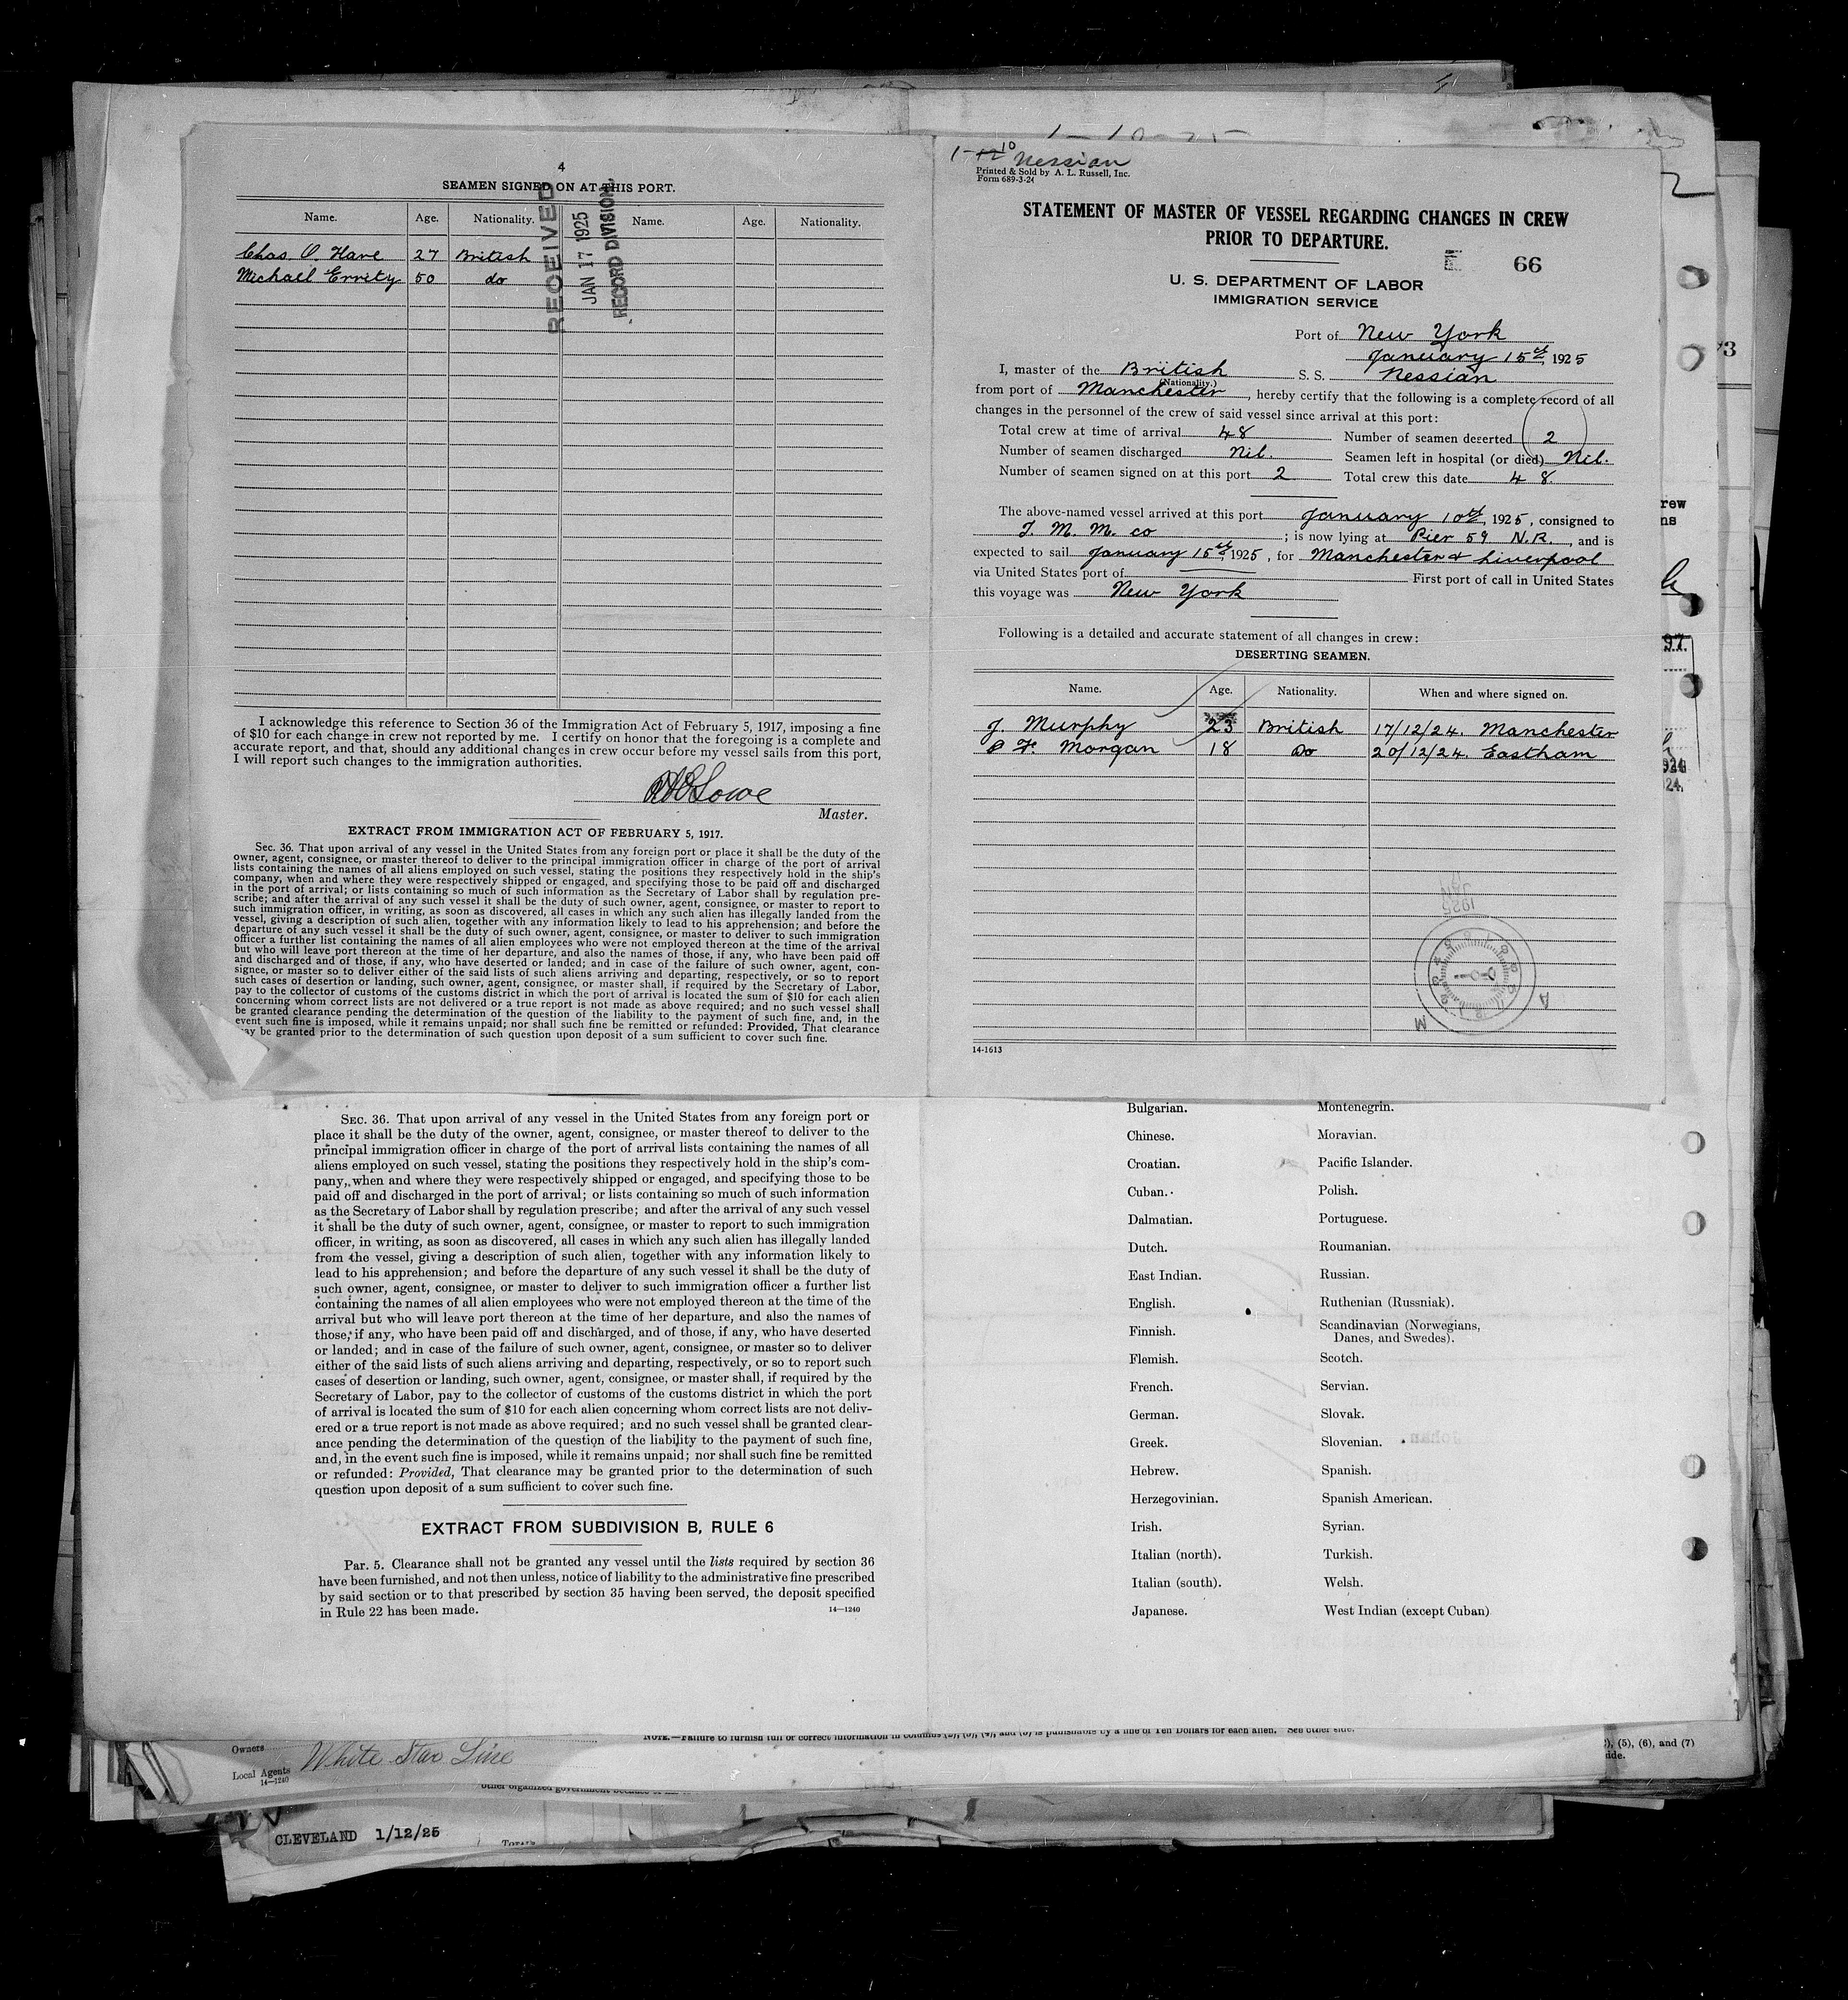 4
SEAMEN SIGNED ON AT THIS PORT.
Name. Age. Nationality. Name. Age. Nationality.
Chas O. Hare 27 British
Michael Errity 50 do
RECEIVED
JAN 17 1925
RECORD DIVISION.
I acknowledge this reference to Section 36 of the Immigration Act of February 5, 1917, imposing a fine
of $10 for each change in crew not reported by me. I certify on honor that the foregoing is a complete and
accurate report, and that, should any additional changes in crew occur before my vessel sails from this port,
I will report such changes to the immigration authorities.
Lowe
Master.
EXTRACT FROM IMMIGRATION ACT OF FEBRUARY 5, 1917.
Sec. 36. That upon arrival of any vessel in the United States from any foreign port or place it shall be the duty of the
owner, agent, consignee, or master thereof to deliver to the principal immigration officer in charge of the port of arrival
lists containing the names of all aliens employed on such vessel, stating the positions they respectively hold in the ship's
company, when and where they were respectively shipped or engaged, and specifying those to be paid off and discharged
in the port of arrival; or lists containing so much of such information as the Secretary of Labor shall by regulation pre-
scribe; and after the arrival of any such vessel it shall be the duty of such owner, agent, consignee, or master to report to
such immigration officer, in writing, as soon as discovered, all cases in which any such alien has illegally landed from the
vessel, giving a description of such alien, together with any information likely to lead to his apprehension; and before the
departure of any such vessel it shall be the duty of such owner, agent, consignee, or master to deliver to such immigration
officer a further list containing the names of all alien employees who were not employed thereon at the time of the arrival
but who will leave port thereon at the time of her departure, and also the names of those, if any, who have been paid off
and discharged and of those, if any, who have deserted or landed; and in case of the failure of such owner, agent, con-
signee, or master so to deliver either of the said lists of such aliens arriving and departing, respectively, or so to report
such cases of desertion or landing, such owner, agent, consignee, or master shall, if required by the Secretary of Labor,
pay to the collector of customs of the customs district in which the port of arrival is located the sum of $10 for each alien
concerning whom correct lists are not delivered or a true report is not made as above required; and no such vessel shall
be granted clearance pending the determination of the question of the liability to the payment of such fine, and, in the
event such fine is imposed, while it remains unpaid; nor shall such fine be remitted or refunded: Provided, That clearance
may be granted prior to the determination of such question upon deposit of a sum sufficient to cover such fine.
1-10-25
1-12 10 Nessian
Printed & Sold by A. L. Russell, Inc.
Form 689-3-24
STATEMENT OF MASTER OF VESSEL REGARDING CHANGES IN CREW
PRIOR TO DEPARTURE.
66
U. S. DEPARTMENT OF LABOR
IMMIGRATION SERVICE
Port of New York
January 15th, 1925
I, master of the British S. S. Nessian
(Nationality.)
from port of Manchester, hereby certify that the following is a complete record of all
changes in the personnel of the crew of said vessel since arrival at this port:
Total crew at time of arrival 48 Number of seamen deserted 2
Number of seamen discharged Nil. Seamen left in hospital (or died) Nil.
Number of seamen signed on at this port 2 Total crew this date 48.
The above-named vessel arrived at this port January 10th, 1925, consigned to
I. M. M. co ; is now lying at Pier 59 N.R., and is
expected to sail January 15th, 1925, for Manchester & Liverpool
via United States port of First port of call in United States
this voyage was New York
Following is a detailed and accurate statement of all changes in crew:
DESERTING SEAMEN.
Name. Age. Nationality. When and where signed on.
J. Murphy 23 British 17/12/24. Manchester
P F. Morgan 18 Do 20/12/24. Eastham
JAN
1925
A M
14-1613
SEC. 36. That upon arrival of any vessel in the United States from any foreign port or
place it shall be the duty of the owner, agent, consignee, or master thereof to deliver to the
principal immigration officer in charge of the port of arrival lists containing the names of all
aliens employed on such vessel, stating the positions they respectively hold in the ship's com-
pany, when and where they were respectively shipped or engaged, and specifying those to be
paid off and discharged in the port of arrival; or lists containing so much of such information
as the Secretary of Labor shall by regulation prescribe; and after the arrival of any such vessel
it shall be the duty of such owner, agent, consignee, or master to report to such immigration
officer, in writing, as soon as discovered, all cases in which any such alien has illegally landed
from the vessel, giving a description of such alien, together with any information likely to
lead to his apprehension; and before the departure of any such vessel it shall be the duty of
such owner, agent, consignee, or master to deliver to such immigration officer a further list
containing the names of all alien employees who were not employed thereon at the time of the
arrival but who will leave port thereon at the time of her departure, and also the names of
those, if any, who have been paid off and discharged, and of those, if any, who have deserted
or landed; and in case of the failure of such owner, agent, consignee, or master so to deliver
either of the said lists of such aliens arriving and departing, respectively, or so to report such
cases of desertion or landing, such owner, agent, consignee, or master shall, if required by the
Secretary of Labor, pay to the collector of customs of the customs district in which the port
of arrival is located the sum of $10 for each alien concerning whom correct lists are not deliv-
ered or a true report is not made as above required; and no such vessel shall be granted clear-
ance pending the determination of the question of the liability to the payment of such fine,
and, in the event such fine is imposed, while it remains unpaid; nor shall such fine be remitted
or refunded: Provided, That clearance may be granted prior to the determination of such
question upon deposit of a sum sufficient to cover such fine.
EXTRACT FROM SUBDIVISION B, RULE 6
Par. 5. Clearance shall not be granted any vessel until the lists required by section 36
have been furnished, and not then unless, notice of liability to the administrative fine prescribed
by said section or to that prescribed by section 35 having been served, the deposit specified
in Rule 22 has been made.
14—1240
Bulgarian. Montenegrin.
Chinese. Moravian.
Croatian. Pacific Islander.
Cuban. Polish.
Dalmatian. Portuguese.
Dutch. Roumanian.
East Indian. Russian.
English. Ruthenian (Russniak).
Finnish. Scandinavian (Norwegians,
Danes, and Swedes).
Flemish. Scotch.
French. Servian.
German. Slovak.
Greek. Slovenian.
Hebrew. Spanish.
Herzegovinian. Spanish American.
Irish. Syrian.
Italian (north). Turkish.
Italian (south). Welsh.
Japanese. West Indian (except Cuban)
NOTE.—Failure to furnish full or correct information in columns (2), (3), (4), and (5) is punishable by a fine of Ten Dollars for each alien. See other side.
Owners
Local Agents White Star Line
14—1240
, (5), (6), and (7)
CLEVELAND 1/12/25
TOTAL